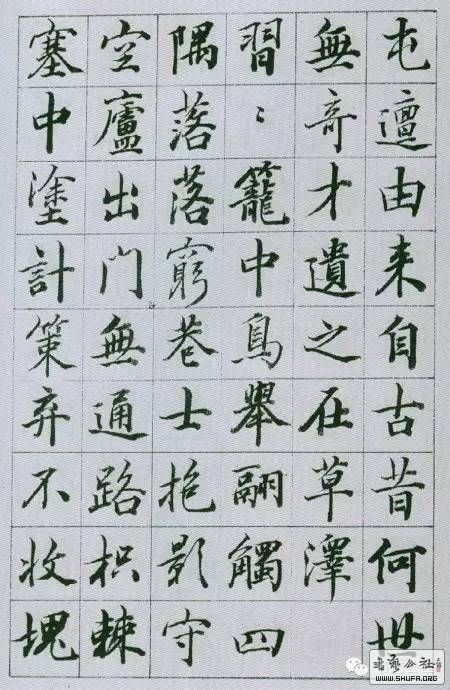 屯邅由来自古昔何世
無奇才遺之在草澤
習〻籠中鳥舉翮觸四
隅落落窮巷士抱影守
空廬出門無通路枳棘
塞中塗計策弃不收塊
書藝公社
WWW.SHUFA.ORG